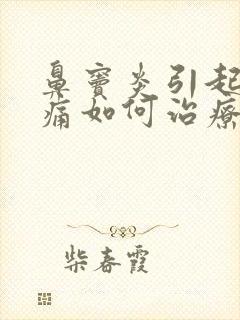 鼻窦炎引起
痛如何治疗
柴春霞